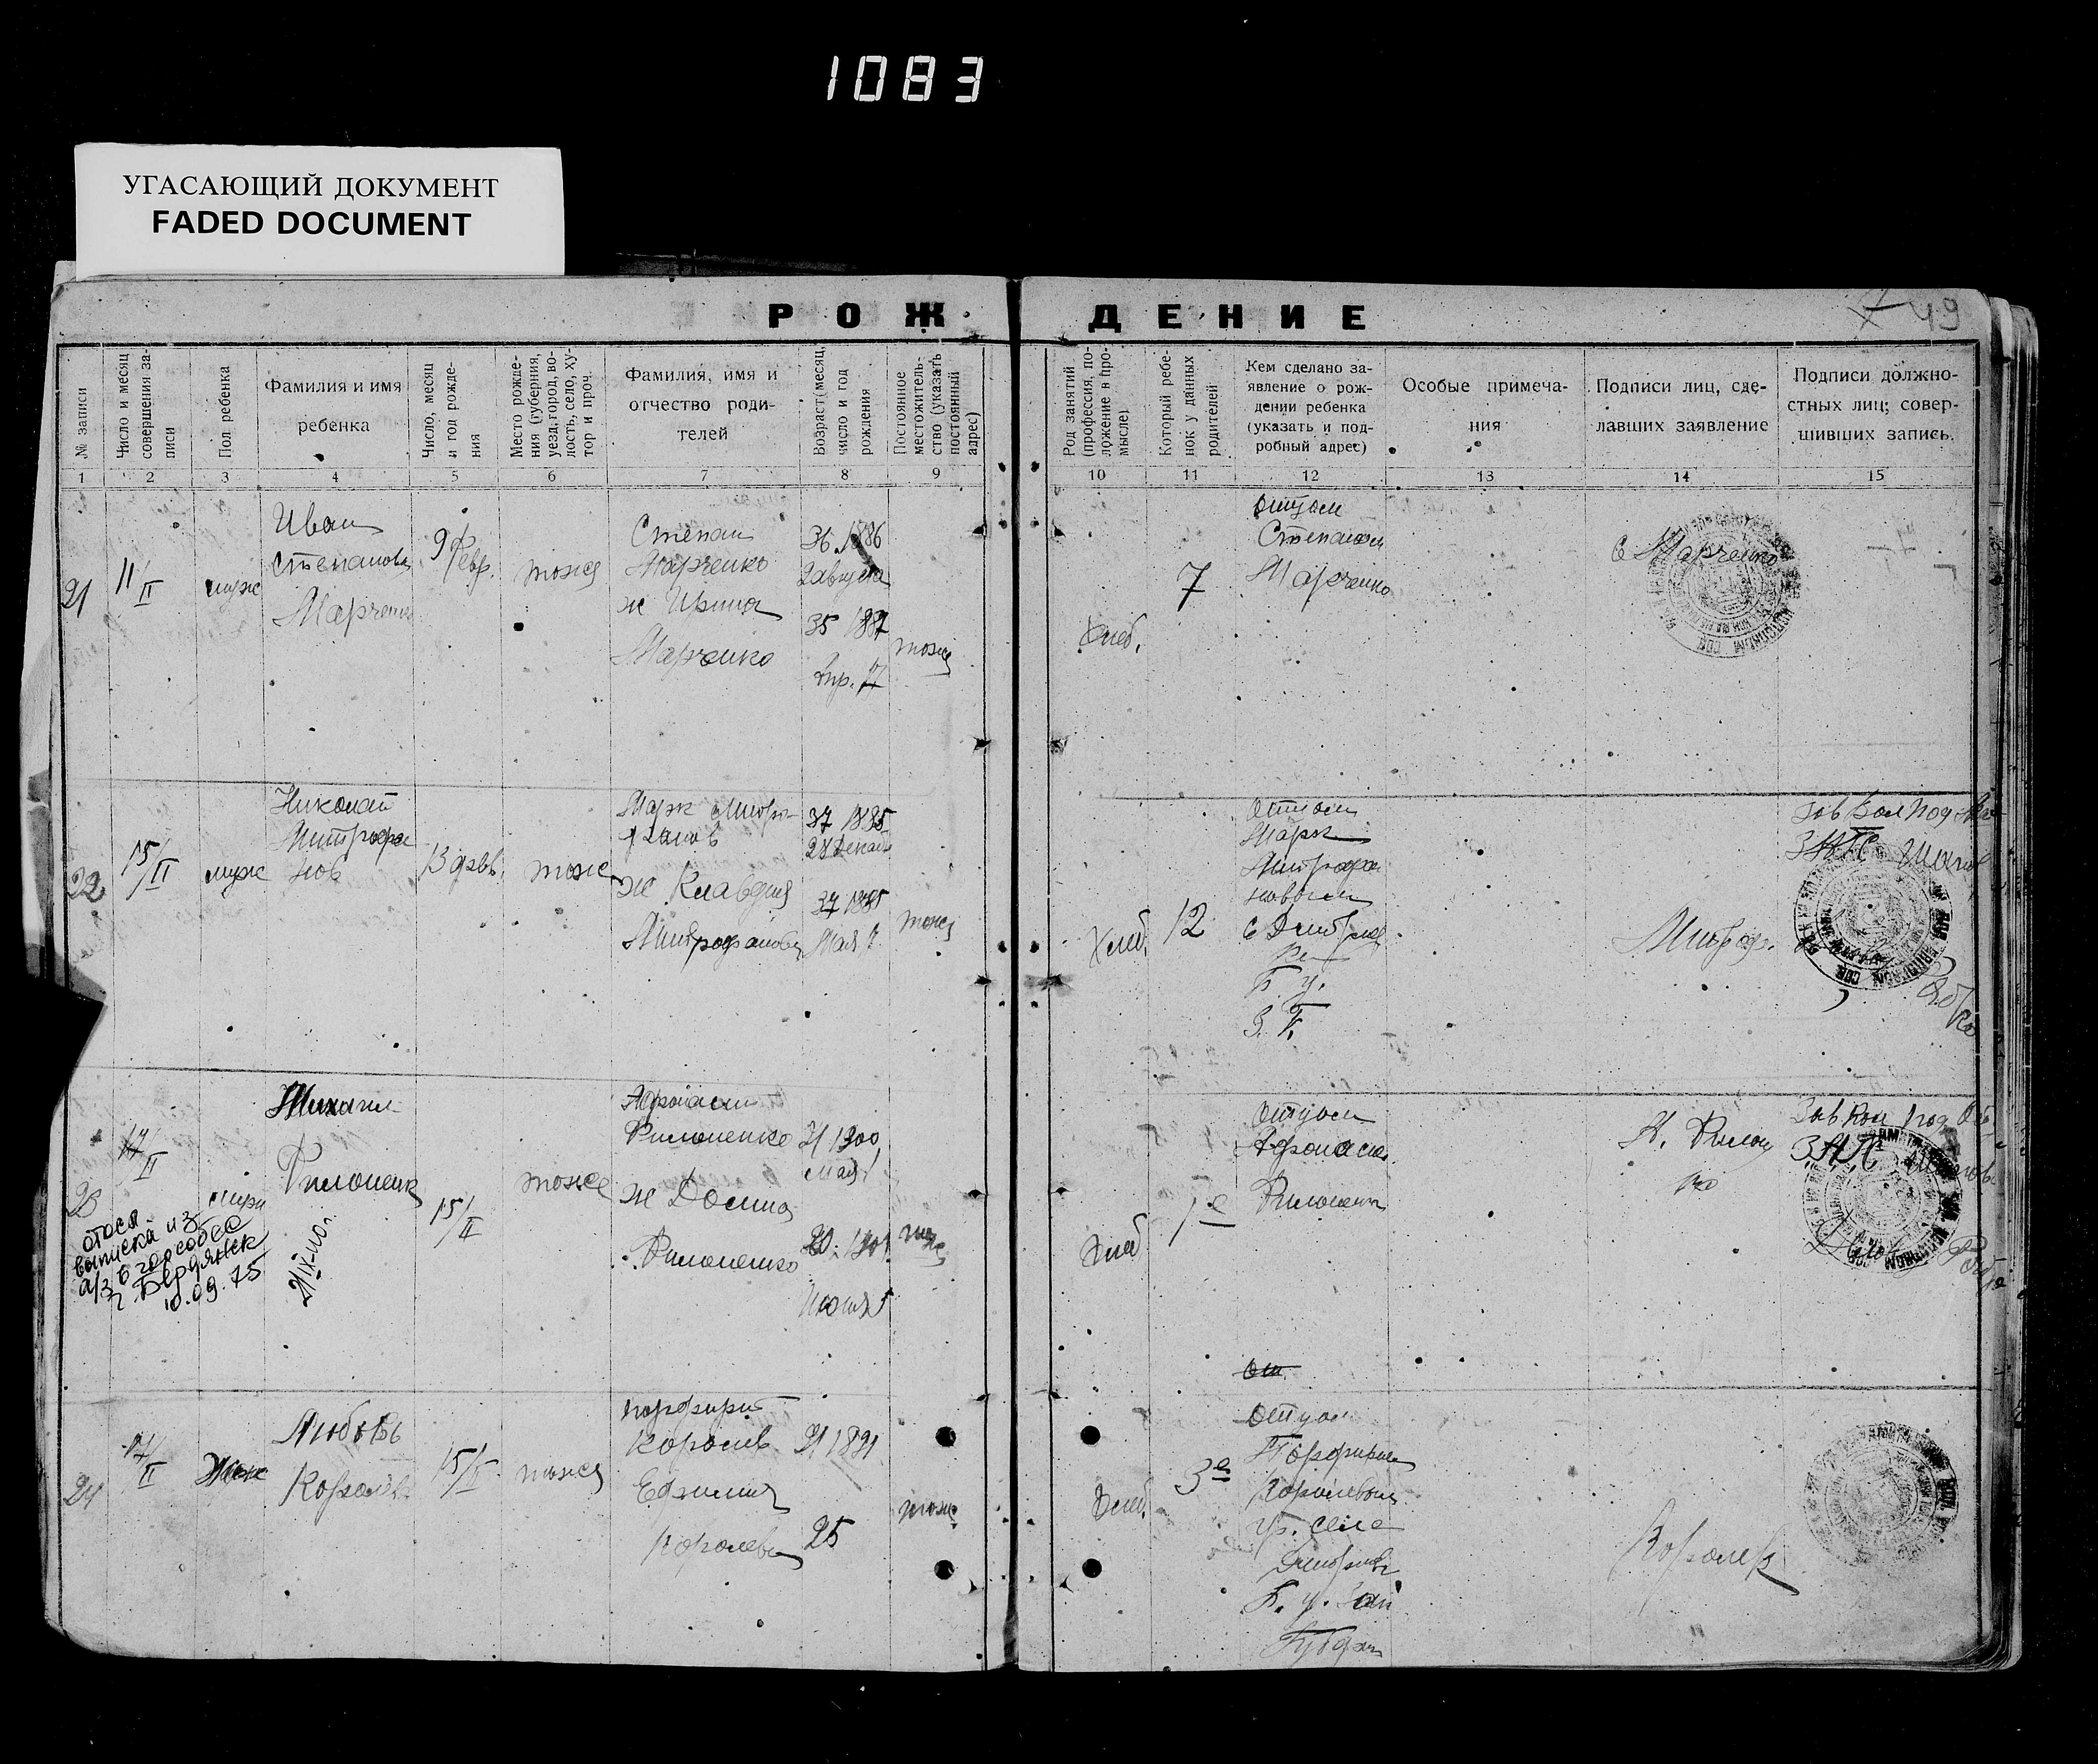 1083
УГАСАЮЩИЙ ДОКУМЕНТ
FADED DOCUMENT
РОЖДЕНИЕ
49
№ записи
Число и месяц совершения записи
Пол ребенка
Фамилия и имя ребенка
Число, месяц и год рождения
Место рождения (губерния, уезд, город, волость, село, хутор и проч.
Фамилия, имя и отчество родителей
Возраст (месяц, число и год рождения
Постоянное местожительство (указать постоянный адрес)
Род занятий (профессия, положение в промысле)
Который ребенок у данных родителей
Кем сделано заявление о рождении ребенка (указать и подробный адрес)
Особые примечания
Подписи лиц, сделавших заявление
Подписи должностных лиц; совершивших запись.
1 2 3 4 5 6 7 8 9 10 11 12 13 14 15
21
11/II
муж
Иван
Степанов
Марченко
9 Февр.
тоже
Степан
Марченко
ж Ирина
Марченко
36 1886
2 августа
35 1887
Апр. 17
тоже
Хлеб.
7
отцом
Степаном
Марченко
С Марченко
22
15/II
муж
Николай
Митрофанов
13 февр.
тоже
Марк Митрофанов
ж Клавдия
Митрофанова
37 1885
28 Декаб
37 1885
Мая 7
тоже
Хлеб.
12
отцом
Марк
Митрофановым
Б у.
З. Г.
Митроф.
ЗАГС
23
17/II
муж
Михаил
Филоненко
15/II
тоже
Афонасий
Филоненко
ж Домна
Филоненко
21 1900
мая 1
20 1901
Июня 5
тоже
Хлеб
1е
отцом
Афонасием
Филоненко
А. Филоненко
ЗАГС
отосл.
выписка из
а/з в горсобес
г. Бердянск
10.09.75
24
17/II
Жен
Любовь
Королева
15/II
тоже
Порфирий
Королев
Ефимия
Королева
31 1891
25
тоже
Хлеб.
3е
От
отцом
Порфирием
Королевым
гр. села
Б. у. Зап
Губерн
Королев